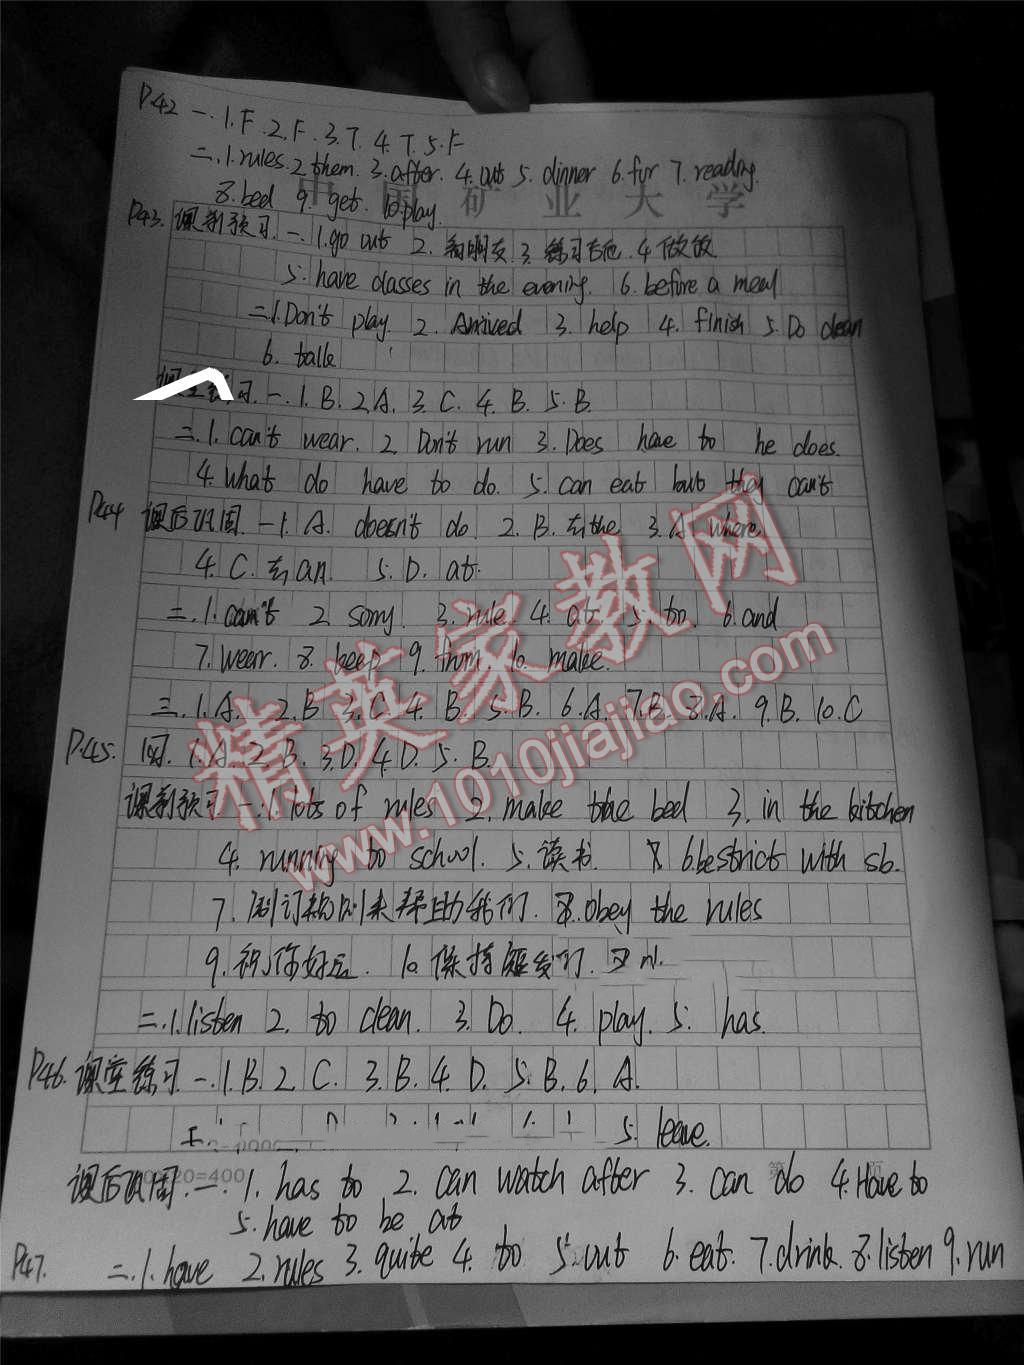 P42 一. 1. F. 2. F. 3. T. 4. T. 5. F
二. 1. rules. 2. them. 3. after. 4. out 5. dinner 6. for 7. reading.
8. bed 9. get. 10. play.
中国矿业大学
P43. 课前预习. 一. 1. go out 2. 看朋友. 3. 练习吉他. 4. 做饭
5. have classes in the evening. 6. before a meal
二. 1. Don't play. 2. Arrived 3. help 4. finish 5. Do clean
6. talk
练习. 一. 1. B. 2. A. 3. C. 4. B. 5. B.
二. 1. can't wear. 2. Don't run 3. Does have to he does.
4. What do have to do. 5. can eat but they can't
P44 课后巩固. 一 1. A. doesn't do 2. B. 去the 3. A where.
4. C. 去an. 5. D. at.
二. 1. can't 2. sorry. 3. rule. 4. at. 5. to. 6. and
7. wear. 8. keep. 9. from. 10. make.
三. 1. A. 2. B 3. C 4. B. 5. B. 6. A. 7. B. 8. A. 9. B. 10. C
P.45. 四. 1. A. 2. B. 3. D. 4. D. 5. B.
课前预习 一. 1. lots of rules 2. make the bed 3. in the kitchen
4. running to school. 5. 读书. 6. be strict with sb.
7. 制订规则来帮助我们. 8. Obey the rules
9. 祝你好运. 10. 保持短发
二. 1. listen 2. to clean. 3. Do. 4. play. 5. has.
P46. 课堂练习 一. 1. B. 2. C. 3. B. 4. D. 5. B. 6. A.
5. leave.
20=400
课后巩固. 一. 1. has to 2. can watch after 3. can do 4. Have to
5. have to be at
P47. 二. 1. have 2. rules 3. quite 4. to 5. out 6. eat. 7. drink. 8. listen 9. run
精英家教网
www.1010jiajiao.com